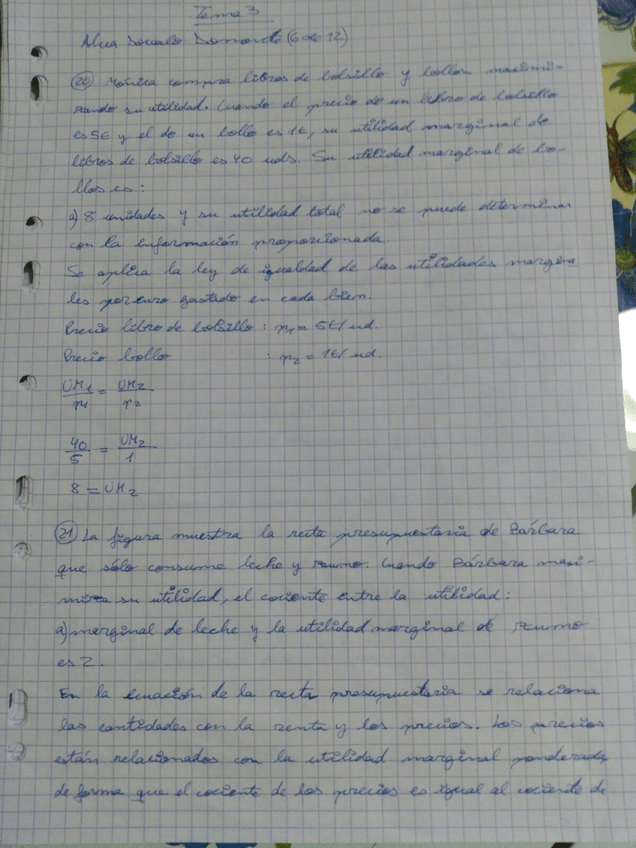 Tema 3
(6 de 12)
20 Mónica compra libros de bolsillo y bollos maximi-
zando su utilidad. Cuando el precio de un libro de bolsillo
es 5€ y el de un bollo es 1€, su utilidad marginal de
libros de bolsillo es 40 uds. Su utilidad marginal de bo-
llos es:
a) 8 unidades y su utilidad total no se puede determinar
con la información proporcionada
Se aplica la ley de igualdad de las utilidades margina
les por euro gastado en cada bien.
Precio libro de bolsillo : r₁ = 5€/ud.
Precio bollo : r₂ = 1€/ud.
UM₁/r₁ = UM₂/r₂
40/5 = UM₂/1
8 = UM₂
21 La figura muestra la recta presupuestaria de Bárbara
que sólo consume leche y zumo. Cuando Bárbara maxi-
miza su utilidad, el cociente entre la utilidad:
a) marginal de leche y la utilidad marginal de zumo
es 2.
En la ecuación de la recta presupuestaria se relaciona
las cantidades con la renta y los precios. Los precios
están relacionados con la utilidad marginal ponderada,
de forma que el cociente de los precios es igual al cociente de